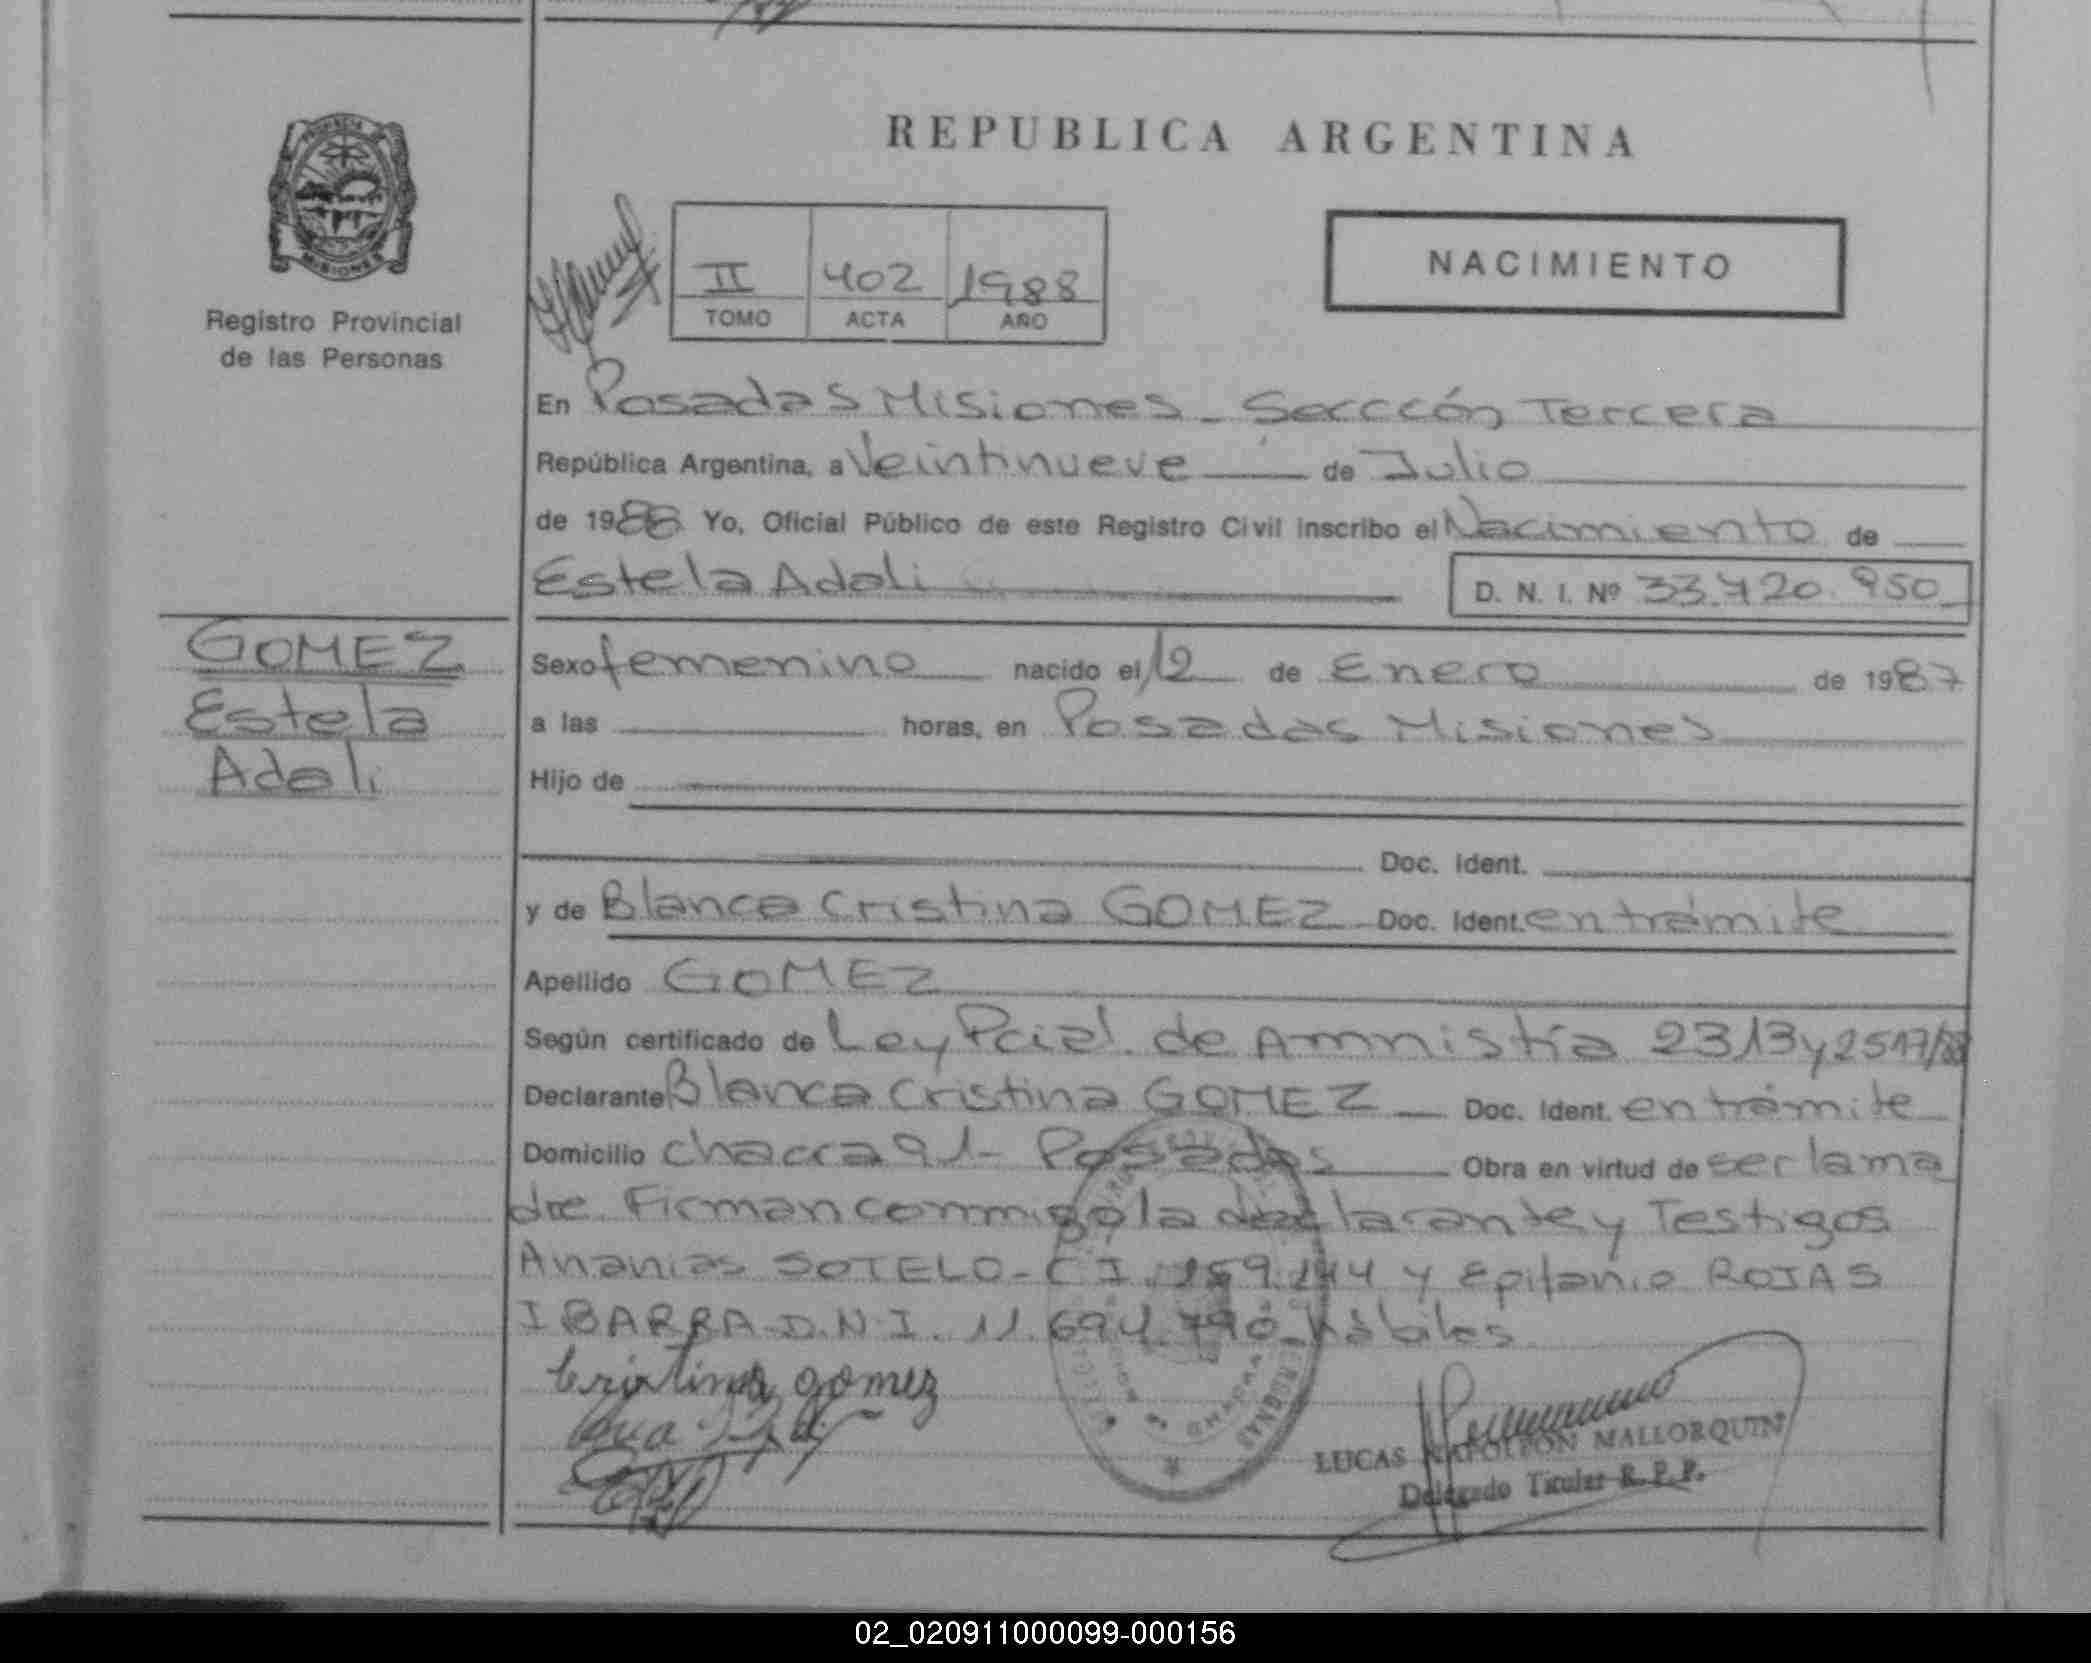 REPUBLICA ARGENTINA
PROVINCIA DE
MISIONES
Registro Provincial
de las Personas
II 402 1988
TOMO ACTA AÑO
NACIMIENTO
En Posadas Misiones - Secccón Tercera
República Argentina, a Veintinueve de Julio
de 1988 Yo, Oficial Público de este Registro Civil inscribo el Nacimiento de
Estela Adali D. N. I. Nº 33.420.950
GOMEZ
Estela
Adali
Sexo femenino nacido el 12 de Enero de 1987
a las horas, en Posadas Misiones
Hijo de
Doc. Ident.
y de Blanca Cristina GOMEZ Doc. Ident. en trámite
Apellido GOMEZ
Según certificado de Ley Pcial. de Amnistía 2313 y 2517/88
Declarante Blanca Cristina GOMEZ Doc. Ident. en trámite
Domicilio chacra 91- Posadas Obra en virtud de ser la ma
dre. Firman conmigo la declarante y Testigos
Ananias SOTELO - C.I. 159.144 y Epifanio ROJAS
IBARRA D.N.I. 11.694.790 hábiles
Cristina gomez
LUCAS NAPOLEON MALLORQUIN
Delegado Titular R. P. P.
02_020911000099-000156